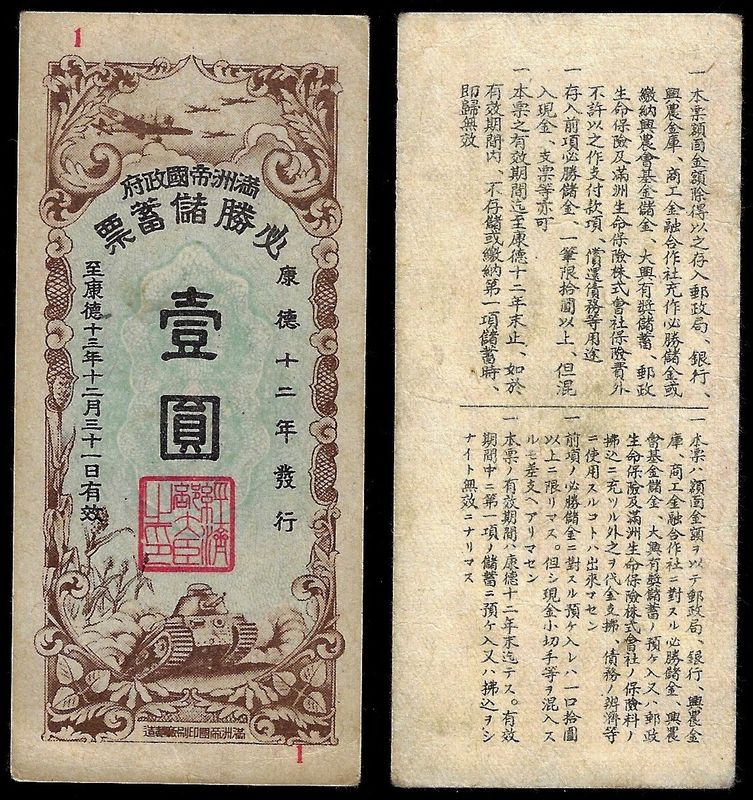 1
滿洲帝國政府
必勝儲蓄票
康德十二年發行
壹圓
至康德十二年十二月三十一日有效
經濟部大臣之印
滿洲帝國印刷廠製造
1
一 本票額面金額除得以之存入郵政局、銀行、
興農金庫、商工金融合作社充作必勝儲金或
繳納興農會基金儲金、大興有奬儲蓄、郵政
生命保險及滿洲生命保險株式會社保險費外
不許以之作支付款項、償還債務等用途
一 存入前項必勝儲金、一筆限拾圓以上、但混
入現金、支票等亦可
一 本票之有效期間迄至康德十二年末止、如於
有效期間內、不存儲或繳納第一項儲蓄時、
即歸無效
一 本票ハ額面金額ヲ以テ郵政局、銀行、興農金
庫、商工金融合作社ニ對スル必勝儲金、興農
會基金儲金、大興有奬儲蓄ノ預ケ入又ハ郵政
生命保險及滿洲生命保險株式會社ノ保險料ノ
拂込ニ充ツル外之ヲ代金支拂、債務ノ辨濟等
ニ使用スルコトハ出來マセン
一 前項ノ必勝儲金ニ對スル預ケ入レハ一口拾圓
以上ニ限リマス。但シ現金小切手等ヲ混入ス
ルモ差支ヘアリマセン
一 本票ノ有效期間ハ康德十二年末迄デス。有效
期間中ニ第一項ノ儲蓄ニ預ケ入又ハ拂込ヲシ
ナイト無效ニナリマス